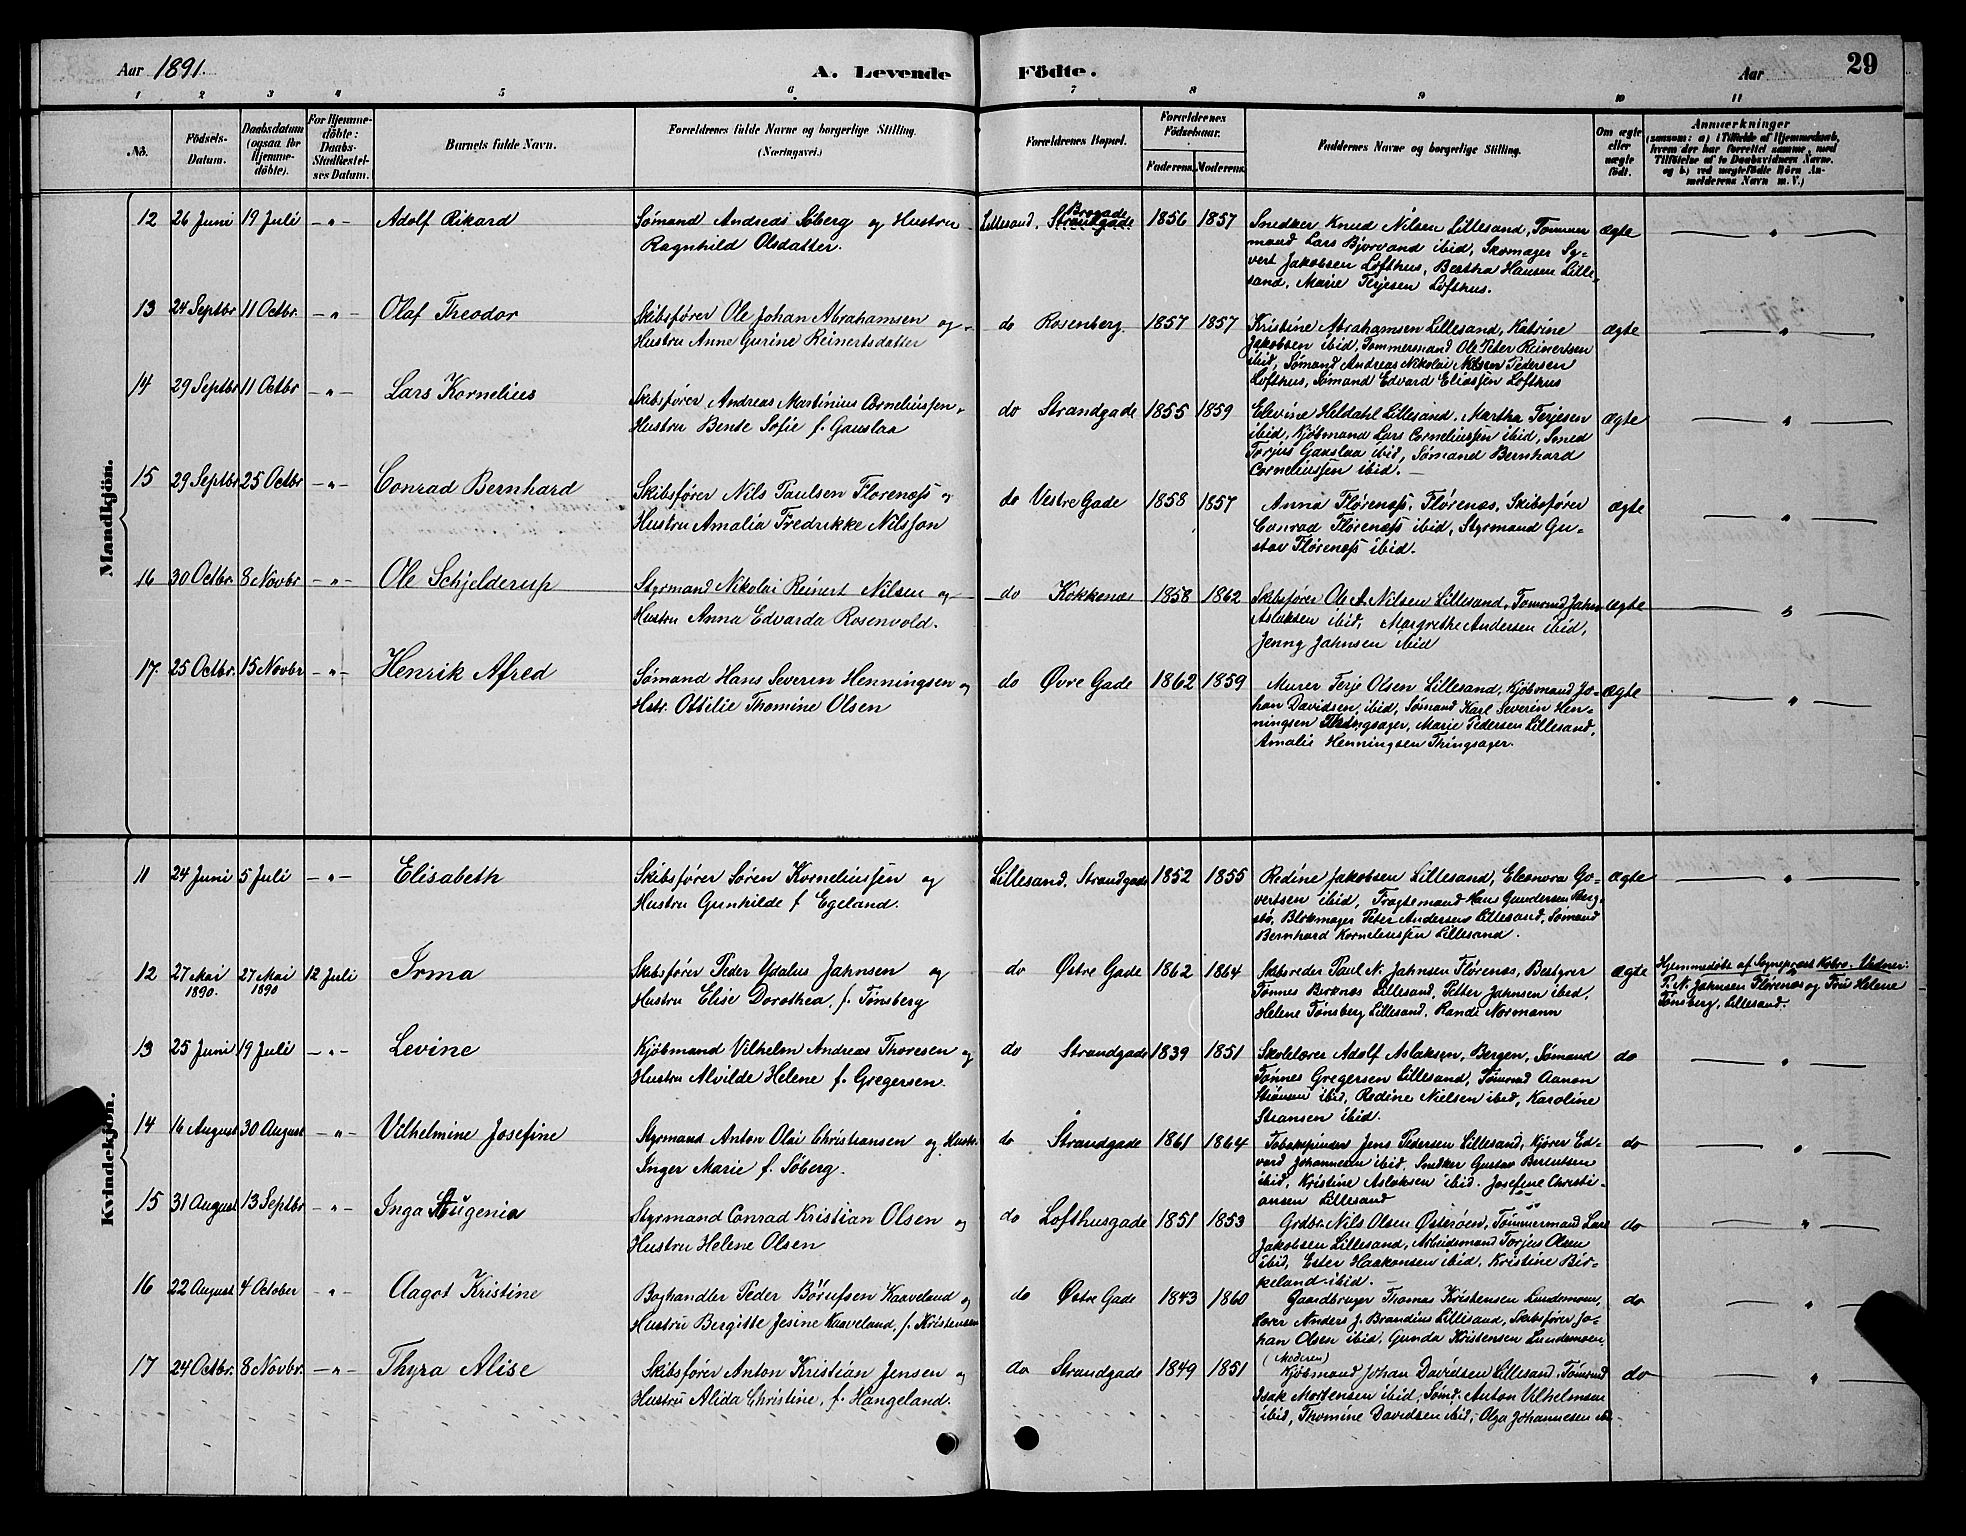 Aar 1891.
A. Levende
Födte.
Aar
29
1 2 3 4 5 6 7 8 9 10 11
No.
Födsels-
Datum.
Daabsdatum
(ogsaa for
Hjemme-
döbte).
For Hjemme-
döbte:
Daabs-
Stadfæstel-
ses Datum.
Barnets fulde Navn.
Forældrenes fulde Navne og borgerlige Stilling.
(Næringsvei.)
Forældrenes Bopæl.
Forældrenes
Födselsaar.
Faderens. Moderens.
Faddernes Navne og borgerlige Stilling.
Om ægte
eller
uægte
født.
Anmærkninger
(saasom: a) i Tilfælde af Hjemmedaab,
hvem der har forrettet samme, med
Tilföielse af to Daabsvidners Navne.
og b) ved uægtefödte Börn An-
melderens Navn m. V.)
Mandkjön.
12 26 Juni 19 Juli -"- Adolf Rikard
Sømand Andreas Søberg og Hustru
Ragnhild Olsdatter.
Lillesand, Strandgade 1856 1857
Snedker Knud Nilsen Lillesand, Tømmer
mand Lars Bjorvand ibid, Skomager Sy-
vert Jakobsen Lofthus, Bertha Hansen Lille-
sand, Marie Terjesen Lofthus.
ægte — " —
13 24 Septbr 11 Octbr. -"- Olaf Theodor
Skibsfører Ole Johan Abrahamsen og
Hustru Anne Gurine Reinertsdatter
do Rosenberg. 1857 1857
Kristine Abrahamsen Lillesand, Katrine
Jakobsen ibid, Tømmermand Ole Peter Reinertsen
ibid, Sømand Andreas Nikolai Pedersen
Lofthus, Sømand Edvard Eliassen Lofthus
ægte — " —
14 29 Septbr 11 Octbr. -"- Lars Kornelius
Skibsfører Andreas Martinius Corneliussen
Hustru Bende Sofie f. Gauslaa
do Strandgade 1855 1859
Elevine Heldahl Lillesand. Martha Terjesen
ibid, Kjøbmand Lars Corneliussen ibid, Smed
Torjus Gauslaa ibid, Sømand Bernhard
Corneliussen ibid. —
ægte — " —
15 29 Septbr 25 Octbr -"- Conrad Bernhard
Skibsfører Nils Paulsen Florenæss og
Hustru Amalia Fredrikke Nilsson
do Vestre Gade 1858 1857
Anna Flørenæss, Flørenæs, Skibsfører
Conrad Flørenæss ibid, Styrmand Gu-
stav Flørenæss ibid.
ægte — " —
16 30 Octbr. 8 Novbr -"- Ole Schjelderup
Styrmand Nikolai Reinert Nilsen og
Hustru Anna Edvarda Rosenvold.
do Kokkenæs 1858 1862
Skibsfører Ole A. Nilsen Lillesand, Tømmd Jahn
Aslaksen ibid, Margrethe Andersen ibid,
Jenny Jahnsen ibid
ægte — " —
17. 25 Octbr. 15 Novbr -"- Henrik Afred
Sømand Hans Severin Henningsen og
Hstr. Ottilie Thomine Olsen
do Øvre Gade 1862 1859
Murer Terje Olsen Lillesand, Kjøbmand Jo-
han Davidsen, ibid, Sømand Karl Severin Hen-
ningsen Thingsager, Marie Pedersen Lillesand,
Amalie Henningsen Thingsager.
ægte — " —
Kvindekjön.
11 24 Juni 5 Juli -"- Elisabeth
Skibsfører Søren Korneliussen og
Hustru Gunhilde f Egeland.
Lillesand. Strandgade 1852 1855
Redine Jakobsen Lillesand, Eleonora Go-
vertsen ibid, Fragtemand Hans Gundersen Berg-
stø, Blokmager Peter Andersen Lillesand, Sømand
Bernhard Korneliussen Lillesand.
ægte — " —
12 27 Mai 1890. 27 Mai 1890 12 Juli Irma
Skibsfører Peder Ydalus Jahnsen og
Hustru Elise Dorothea, f. Tønsberg
do Østre Gade 1862 1864
Skibsreder Paul N. Jahnsen Flørenæs, Bestyrer
Tønnes Birknæs Lillesand, Petter Jahnsen ibid,
Helene Tønsberg Lillesand, Randi Normann
ægte
Hjemmedøbt af Sognepræst Vidner:
P. N. Jahnsen Flørenæs og Fru Helene
Tønsberg, Lillesand.
13 25 Juni 19 Juli -"- Levine
Kjøbmand Vilhelm Andreas Thoresen og
Hustru Alvilde Helene f. Gregersen.
do Strandgade 1839 1851
Skolelærer Adolf Aslaksen, Bergen, Sømand
Tønnes Gregersen Lillesand, Tømmd Aanon
ibid, Redine Nielsen ibid, Karoline
Stransen ibid.
do — " —
14 16 August 30 August -"- Vilhelmine Josefine
Styrmand Anton Olai Christiansen og Hustr.
Inger Marie f. Søberg.
do Strandgade 1861 1864
Tobakspinder Jens Pedersen Lillesand, Kjører Ed-
vard Johannesen ibid, Snedker Gustav Berentsen
ibid, Kristine Aslaksen ibid. Josefine Christi-
ansen Lillesand
do — " —
15 31 August 13 Septbr -"- Inga Augenia
Styrmand Conrad Kristian Olsen og
Hustru Helene Olsen
do Lofthusgade 1851 1853
Grdbr. Nils Olsen Østerøen, Tømmermand Lars
Jakobsen Lillesand, Arbeidsmand Torjus Olsen
ibid, Ester Haakonsen ibid, Kristine Bir-
keland ibid. —
do — " —
16 22 August 4 October -"- Aagot Kristine
Boghandler Peder Börufsen Kaaveland og
Hustru Bergitte Jesine Kaaveland, f. Kristensen
do Østre Gade 1843 1860
Gaardbruger Thomas Kristensen Lundemoen,
Lærer Anders J. Brandius Lillesand, Skibsfører Jo-
han Olsen ibid, Gunda Kristensen Lundemoen.
(Moderen)
do — " —
17 24 Octbr. 8 Novbr. -"- Thyra Alise
Skibsfører Anton Kristian Jensen og
Hustru Alida Christine, f. Hangeland.
do Strandgade 1849 1851
Kjøbmand Johan Davidsen Lillesand, Tømmd
Isak Mortensen ibid, Sømd. Anton Vilhelmsen
ibid, Thomine Davidsen ibid, Olga Johannesen ibd
do — " —